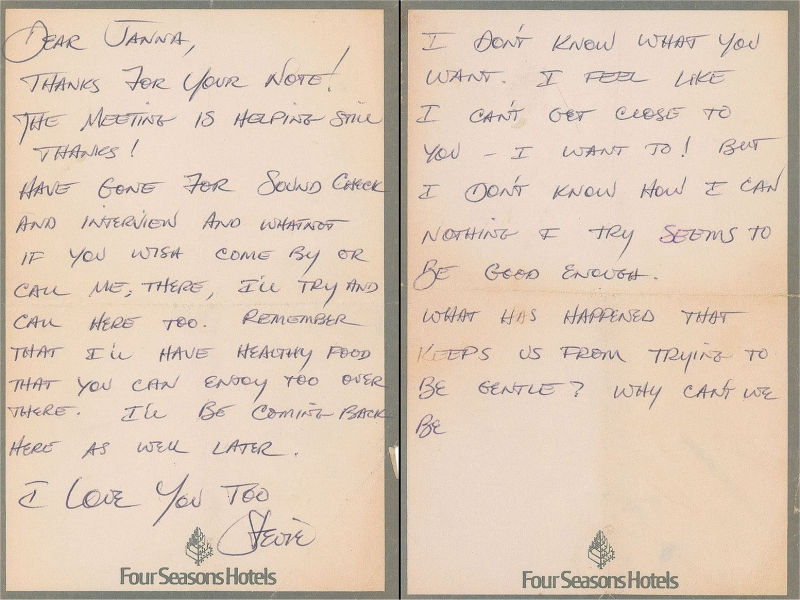 DEAR JANNA,
THANKS FOR YOUR NOTE!
THE MEETING IS HELPING STILL
THANKS!
HAVE GONE FOR SOUND CHECK
AND INTERVIEW AND WHATNOT
IF YOU WISH COME BY OR
CALL ME, THERE, I'LL TRY AND
CALL HERE TOO. REMEMBER
THAT I'LL HAVE HEALTHY FOOD
THAT YOU CAN ENJOY TOO OVER
THERE. I'LL BE COMING BACK
HERE AS WELL LATER.
I LOVE YOU TOO
STEVIE
Four Seasons Hotels
I DON'T KNOW WHAT YOU
WANT. I FEEL LIKE
I CAN'T GET CLOSE TO
YOU - I WANT TO! BUT
I DON'T KNOW HOW I CAN
NOTHING I TRY SEEMS TO
BE GOOD ENOUGH.
WHAT HAS HAPPENED THAT
KEEPS US FROM TRYING TO
BE GENTLE? WHY CAN'T WE
BE
Four Seasons Hotels